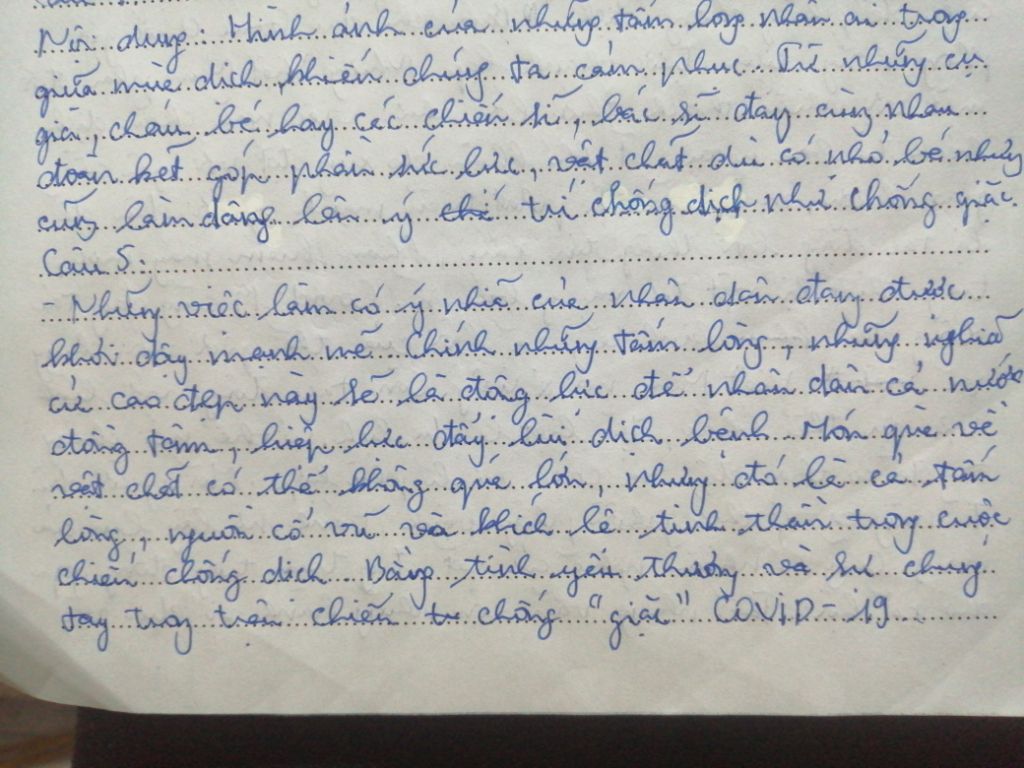 Nội dung: Hình ảnh của những tấm lòng nhân ái trong
giữa mùa dịch khiến chúng ta cảm phục. Từ những cụ
già, cháu bé hay các chiến sĩ, bác sĩ đay cùng nhau
đoàn kết góp phần sức lực, vật chất dù có nhỏ bé nhưng
cũng làm dâng lên ý chí trí chống dịch như chống giặc.
Câu 5:
- Những việc làm có ý nhĩa của nhân dân đay được
khơi dậy mạnh mẽ Chính những tấm lòng, những nghĩa
cử cao đẹp này sẽ là động lực để nhân dân cả nước
đồng tâm, hiệp lực đẩy lùi dịch bệnh. Món quà về
vật chất có thể không quá lớn, nhưng đó là cả tấm
lòng, nguồn cổ vũ và khích lệ tinh thần trong cuộc
chiến chống dịch. Bằng tình yêu thương và sự chung
tay trong trận chiến tr chống "giặc" COVID - 19